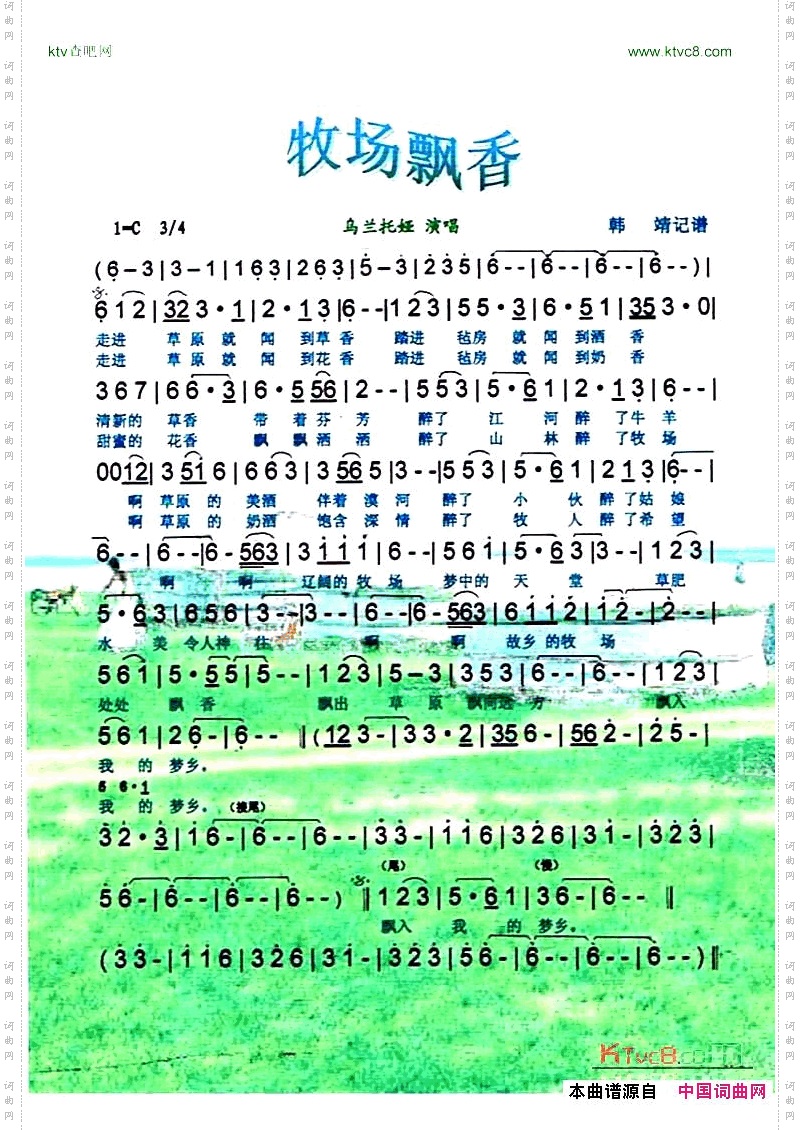 ktv查吧网 www.ktvc8.com
牧场飘香
1=C 3/4 乌兰托娅 演唱 韩 靖记谱
(6-3|3-1|163|263|5-3|235|6--|6--|6--|6--)|
612|323·1|2·13|6--|123|55·3|6·51|353·0|
走进 草原就 闻 到草香 踏进 毡房 就 闻到酒 香
走进 草原就 闻 到花香 踏进 毡房 就 闻到奶 香
367|66·3|6·556|2--|553|5·61|2·13|6--|
清新的 草香 带 着芬 芳 醉了 江 河醉 了牛 羊
甜蜜的 花香 飘 飘洒 洒 醉了 山 林醉 了牧 场
0012|3516|663|3565|3--|235|5·61|213|6--|
啊 草原 的 美酒 伴着 漠 河 醉了 小 伙 醉 了姑 娘
啊 草原 的 奶酒 饱含 深 情 醉了 牧 人 醉 了希 望
6--|6--|6-563|3111|6--|561|5·35|3--|123|
啊 啊 辽阔的 牧 场 梦中的 天 堂 草肥
5·63|656|3--|3--|6--|6-563|6112|112|2--|
水 美 令人神 往 啊 啊 故乡 的牧 场
561|5·55|5--|123|5-3|353|61·2|3--|123|
处处 飘 香 飘出 草 原 飘向远 方 飘入
561|26-|6-- ‖(123-|33·2|356-|562-|25-|
我 的 梦乡。
6 6·1
我 的 梦乡。(接尾)
32·3|116-|6--|6--|33-|116|326|31-|138|
(尾) (慢)
56-|6--|6--|6--)‖123|5·61|36-|6-- ‖
飘入 我 的 梦乡。
(33-|116|326|31-|323|56-|6--|6--|6--)‖
KTvc8.com
本曲谱源自 中国词曲网
词曲网